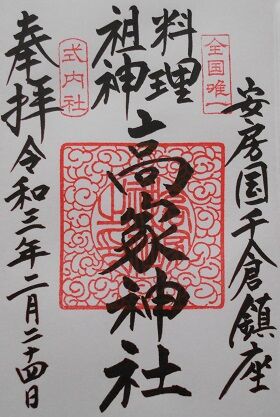 安房国千倉鎮座
全国唯一
料理
祖神
高家神社
式内社
奉拝
令和三年二月二十四日